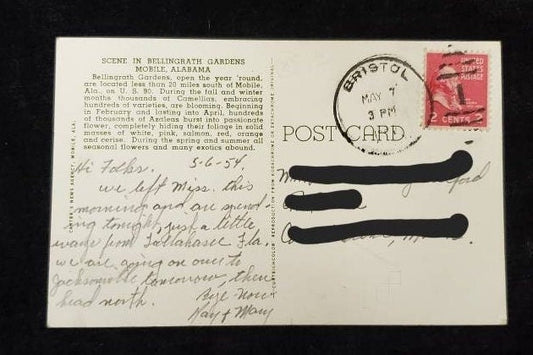 SCENE IN BELLINGRATH GARDENS
MOBILE, ALABAMA
Bellingrath Gardens, open the year 'round,
are located less than 20 miles south of Mobile,
Ala., on U. S. 90. During the fall and winter
months thousands of Camellias, embracing
hundreds of varieties, are blooming. Beginning
in February and lasting into April, hundreds
of thousands of Azaleas burst into passionate
flower, completely hiding their foliage in solid
masses of white, pink, salmon, red, orange
and cerise. During the spring and summer all
seasonal flowers and many exotics abound.
Hi Folks. 5-6-54.
we left Miss. this
morning and are spend-
ing tonight just a little
ways from Tallahasee Fla.
we are going on over to
Jacksonville tomorrow, then
head north.
Bye Now
Ray & Mary
BRISTOL
MAY 7
3 PM
UNITED
STATES
POSTAGE
2 CENTS 2
POST CARD